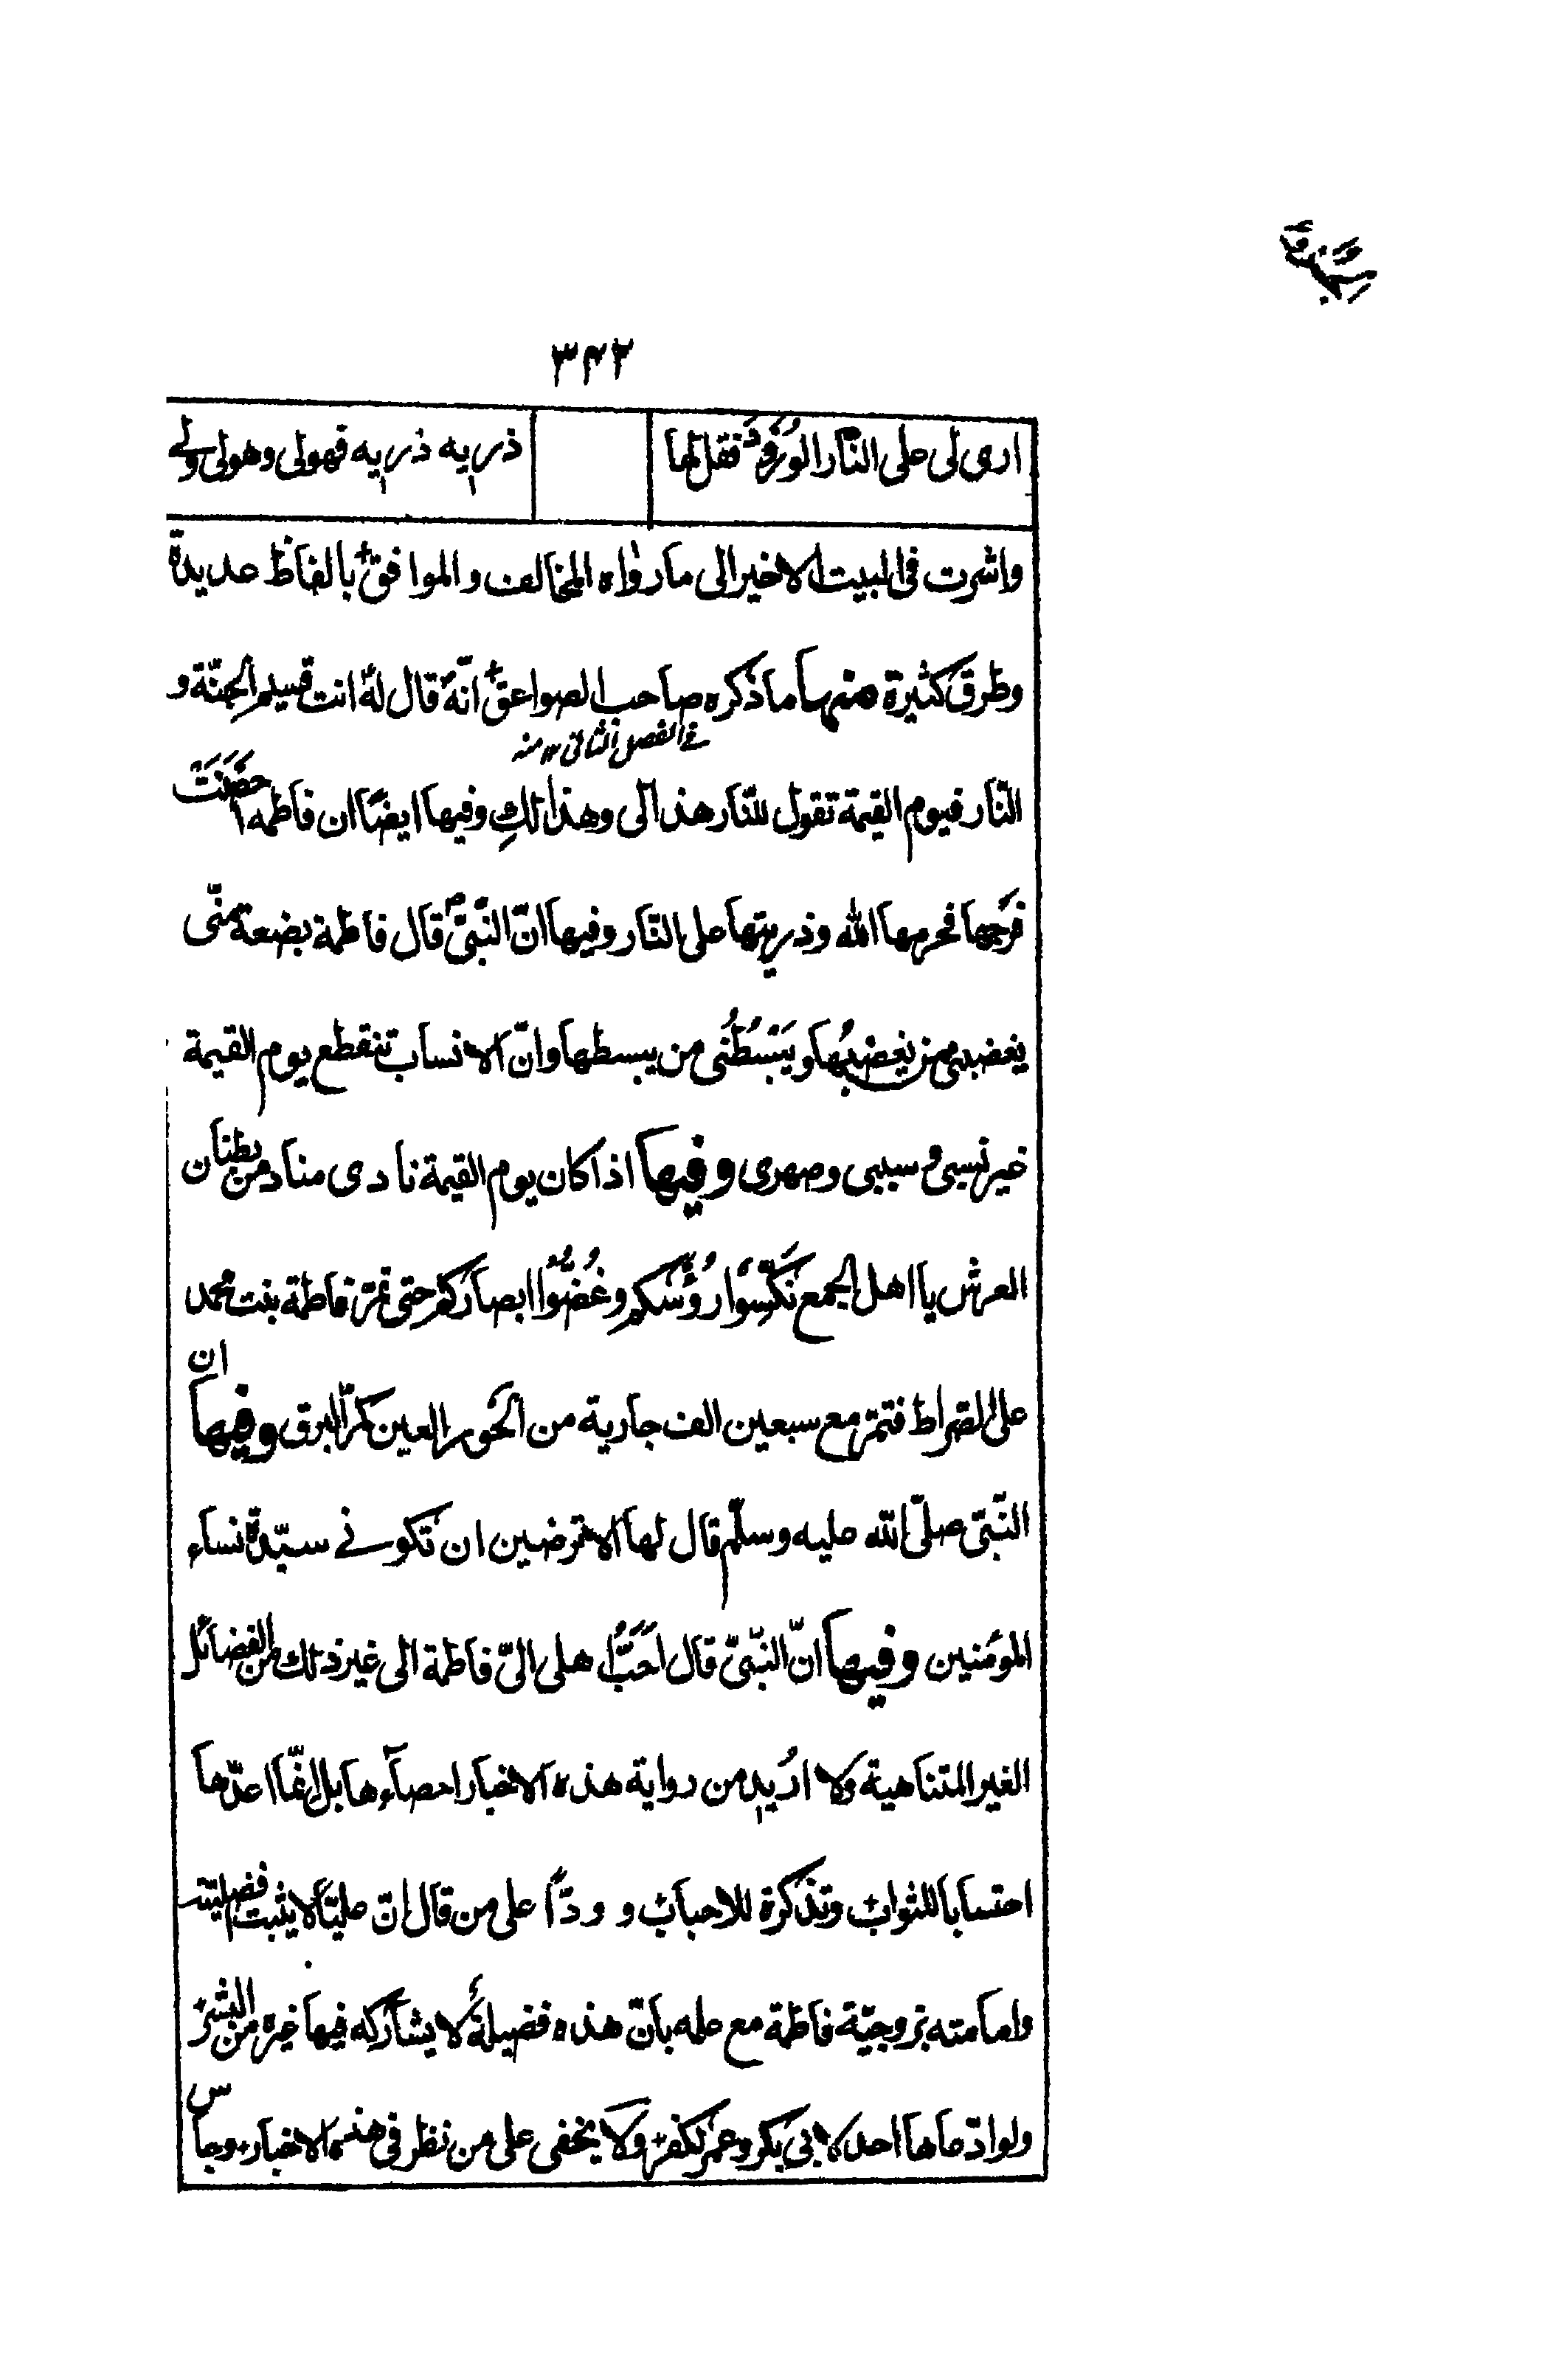 ٣٤٢
ارى لى على النّار الوُرود فقل لها
ذريه ذريه فهولى وهولى ولے
واشرت فى البيت الاخير الى ما رواه المخالف والموافق بالفاظ عديدة
وطرق كثيرة منها ما ذكره صاحب الصواعق انّه قال له انت قسيم الجنّة و
فى الفصل الثانى ١٢ منه
النّار فيوم القيمة تقول للنّار هذا لى وهذا لكِ وفيها ايضًا ان فاطمه احصَنَتْ
فرجها فحرمها الله وذريتها على النّار وفيها انّ النّبىّ ص قال فاطمة بضعة منّى
يغضبنى من يغضبُها ويَبْسُطُنى من يبسطها وانّ الانساب تنقطع يوم القيمة
غير نسبى و سببى وصهرى وفيها اذا كان يوم القيمة نادى مناد من بطنان
العرش يا اهل الجمع نَكِّسُوا رُؤُسَكم وغُضُّوا ابصاركم حتى تمرّ فاطمة بنت محمد
على الصراط فتمرّ مع سبعين الف جارية من الحُور العين كمرّ البرق وفيها ان
النّبىّ صلّى الله عليه وسلّم قال لها الا ترضين ان تكونے سيّدة نساء
المؤمنين وفيها انّ النّبىّ قال احَبُّ اهلى الىّ فاطمة الى غير ذلك من الفضائل
الغير المتناهية ولا اُريد من رواية هذه الاخبار احصاءها بل انّما اعدّها
احتسابا للثواب وتذكرة للاحباب و ردًّا على من قال انّ عليّاً لا يثبت افضليّته
وامامته بزوجيّة فاطمة مع علمه بانّ هذه فضيلةٌ لا يشاركه فيها غيره من البشر
ولو ادّعاها احد لابى بكر وعمر لكفر ولا يخفى على من نظر فى هذه الاخبار وجاس